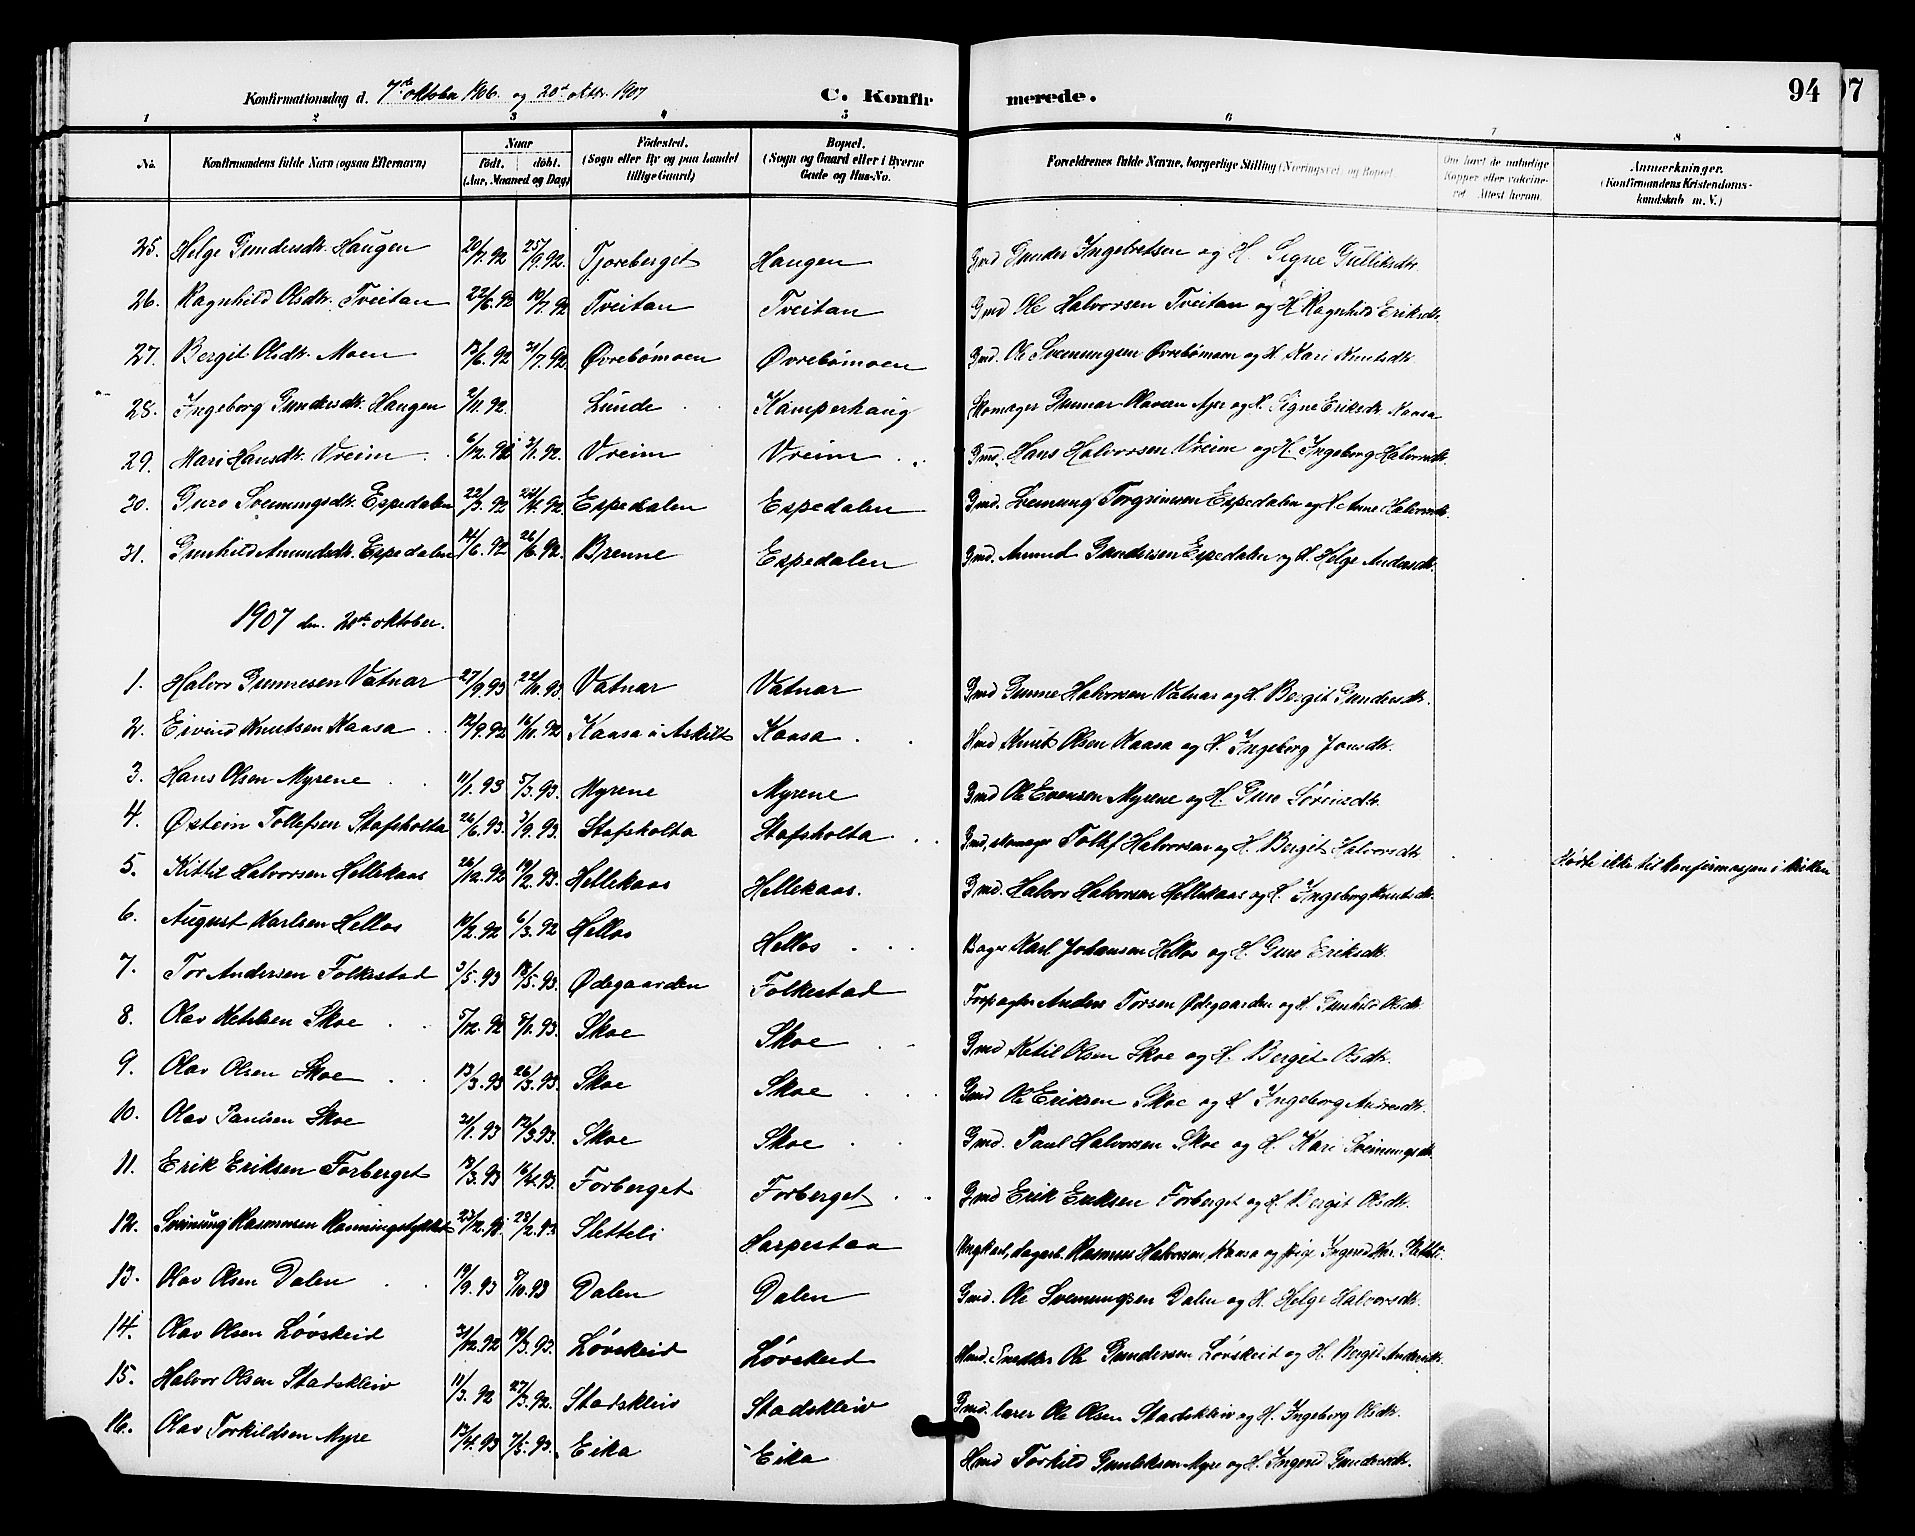 Konfirmationsdag d. 7de oktober 1906 og 20de oktbr. 1907
C. Konfir merede. 94 97
1 2 3 4 5 6 7 8
No. Konfirmandens fulde Navn (ogsaa Efternavn) Naar født. døbt. (Aar, Maaned og Dag) Fødested. (Sogn eller By og paa Landet tillige Gaard) Bopæl. (Sogn og Gaard eller i Byerne Gade og Hus-No. Forældrenes fulde Navne, borgerlige Stilling (Næringsvei) og Bopæl. Om havt de naturlige Kopper eller vakcineret. Attest herom. Anmærkninger. (Konfirmandens Kristendomskundskab m. V.)
25. Helge Gundersdtr. Haugen 20/7.92 25/9.92. Tjoreberget Haugen Gmd Gunder Ingebretsen og H. Signe Gulliksdtr.
26. Ragnhild Olsdtr. Tveitan 22/6.92 10/7.92 Tveitan Tveitan Gmd Ole Halvorsen Tveitan og H. Ragnhild Eriksdtr.
27. Bergit Olsdtr. Moen 13/6.92 31/7.92. Øvrebømoen Øvrebømoen Gmd. Ole Svenungsen Øvrebømoen og H. Kari Knutsdtr.
28. Ingeborg Gundersdtr. Haugen 2/11.92. Lunde Kamperhaug Skomager Gunnar Olavsen og H. Signe Eriksdtr. Kaasa
29. Mari Hansdtr. Vreim 6/12.92 Vreim Vreim Gmd. Hans Halvorsen Vreim og H. Ingeborg Halvorsdtr.
30. Guro Svenungsdtr. Espedalen 22/3.92 24/4.92. Espedalen Espedalen Gmd. Svenung Torgrimsen Espedalen og H. Anne Halvorsdtr.
31. Gunhild Amundsdtr. Espedalen 14/6.92 26/6.92. Brenne Espedalen Gmd. Amund Gundersen Espedalen og H. Helge Andersdtr.
1907 den 20de oktober.
1. Halvor Gunnesen Vatnar 27/9.93 22/10.93. Vatnar Vatnar Gmd Gunne Halvorsen Vatnar og H. Bergit Gundersdtr.
2. Eivind Knutsen Kaasa 12/9.92 16/10.92 Kaasa i Askilt Kaasa Hmd Knut Olsen Kaasa og H. Ingeborg Jonsdtr.
3. Hans Olsen Myrene 11/1.93 5/3.93. Myrene Myrene Gmd Ole Evensen Myrene og H. Guro Sørensdtr.
4. Østein Tollefsen Stafsholta 26/6.93 3/9.93. Stafsholta Stafsholta Gmd, skomager Tollef Halvorsen og H. Bergit Halvorsdtr
5. Kittil Halvorsen Hellekaas 26/12.92 19/2.93. Hellekaas Hellekaas. Gmd. Halvor Halvorsen Hellekaas og H. Ingeborg Knutsdtr. Hørte ikke til konfirmasjon i kirken
6. August Karlsen Hellos 14/2.92 6/3.92 Hellos Hellos Bager Karl Johansen Hellos og H. Guro Eriksdtr.
7. Tor Andersen Folkestad 3/5.93 18/5.93. Ødegaarden Folkestad Forpagter Anders Torsen Ødegaarden og H. Gunhild Olsdtr.
8. Olav Ketilsen Skoe 5/12.92 8/1.93. Skoe Skoe Gmd Ketil Olsen Skoe og H. Bergit Olsdtr.
9. Olav Olsen Skoe 13/3.93 26/3.93. Skoe Skoe Gmd Ole Eriksen Skoe og H Ingeborg Andersdtr.
10. Olav Paulsen Skoe 31/1.93 12/3.93. Skoe Skoe Gmd. Paul Halvorsen Skoe og H. Kari Svenungsdtr.
11. Erik Eriksen Forberget 13/3.93 16/4.93. Forberget Forberget Gmd Erik Eriksen Forberget og H. Bergit Olsdtr.
12. Svenung Rasmussen Ranningstykket Sletteli Harpestaa Ungkarl, dagarb. Rasmus Halvorsen Kaasa og Pige Ingerid
13. Olav Olsen Dalen 19/9.93 8/10.93 Dalen Dalen Gmd. Ole Svenungsen Dalen og H. Helge Halvorsdtr.
14. Olav Olsen Løvskeid 31/12.92 19/3.93. Løvskeid Løvskeid Hmd. Ole Gundersen Løvskeid og H. Bergit Andersdtr.
15. Halvor Olsen Stadskleiv 11/3.92 27/3.92. Stadskleiv Stadskleiv Gmd. lærer Ole Olsen Stadskleiv og H. Ingeborg Olsdtr.
16. Olav Torkildsen Myre 13/4.93 7/5.93. Eika Eika Hmd Torkild Gunleiksen Myre og H. Ingerid Gundersdtr.